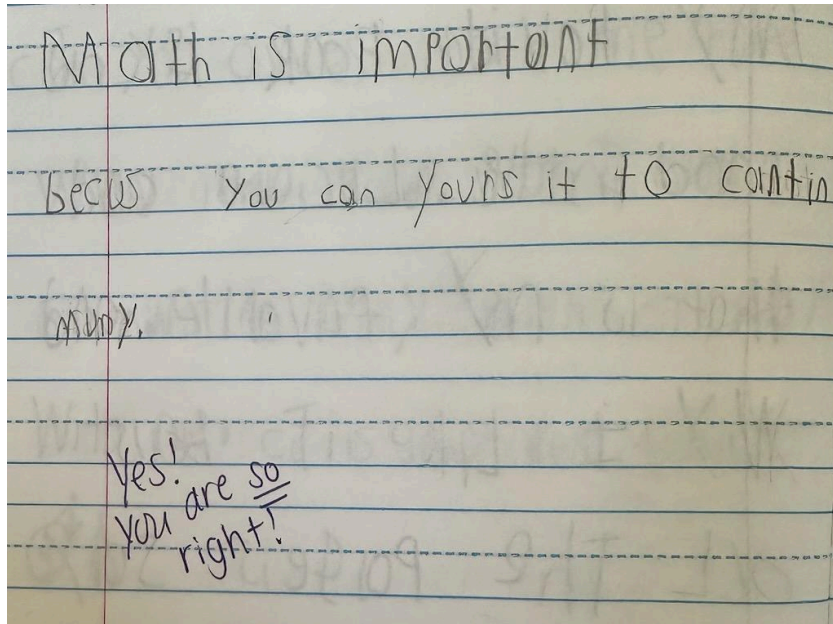 Math is important
becus you can yours it to contin
muny.
Yes!
you are so
right!